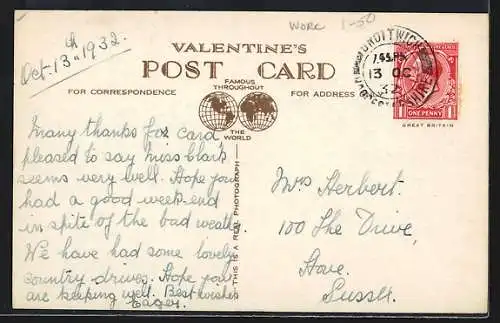 WORC 1-50
Oct. 13th 1932.
VALENTINE'S
POST CARD
FAMOUS
THROUGHOUT
THE
WORLD
FOR CORRESPONDENCE
FOR ADDRESS
DROITWICH
7.45 PM
13 OC
32
WORCESTERSHIRE
ONE PENNY
GREAT BRITAIN
THIS IS A REAL PHOTOGRAPH
Many thanks for card
pleased to say Miss Clark
seems very well. Hope you
had a good week-end
in spite of the bad weather
We have had some lovely
country drives. Hope you
are keeping well. Best wishes
Mrs Herbert.
100 The Drive,
Hove.
Sussex.